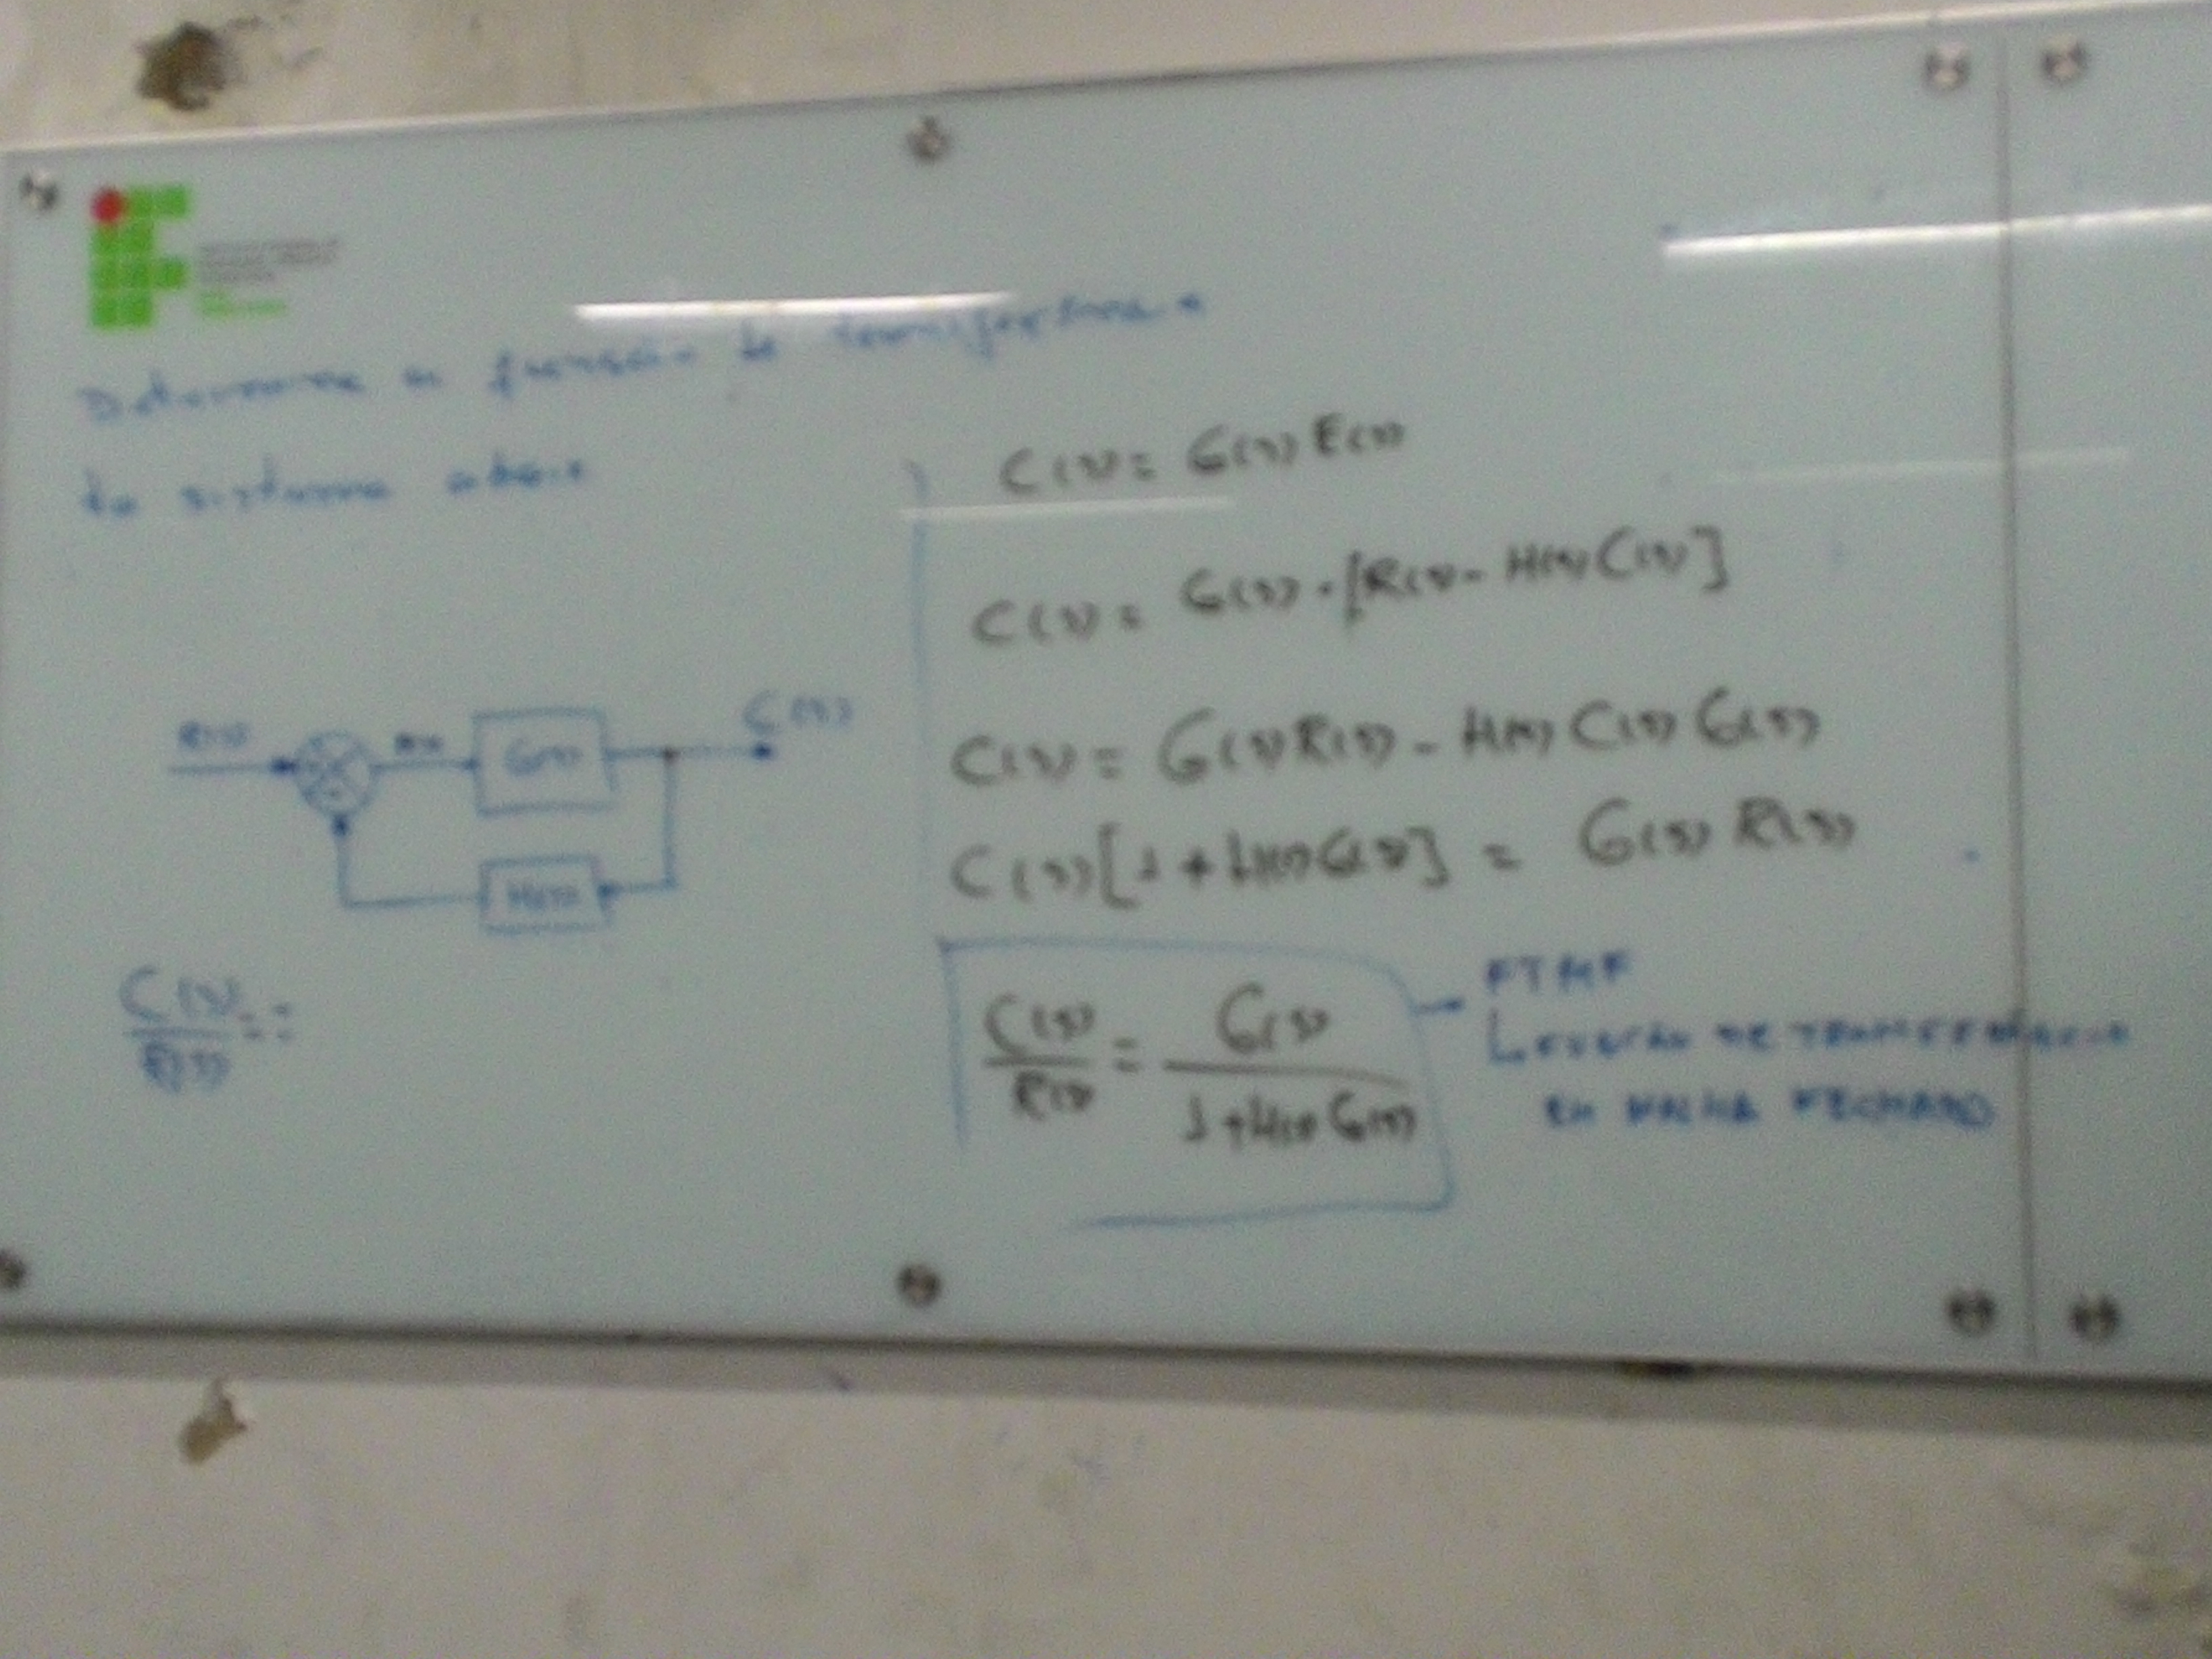 Determine a função de transferência
do sistema abaixo
R(s)
E(s)
G(s)
C(s)
H(s)
C(s)/R(s) = ?
C(s) = G(s) E(s)
C(s) = G(s) · [R(s) - H(s) C(s)]
C(s) = G(s) R(s) - H(s) C(s) G(s)
C(s) [1 + H(s) G(s)] = G(s) R(s)
C(s)/R(s) = G(s)/1 + H(s) G(s)
FTMF
FUNÇÃO DE TRANSFERÊNCIA
EM MALHA FECHADA